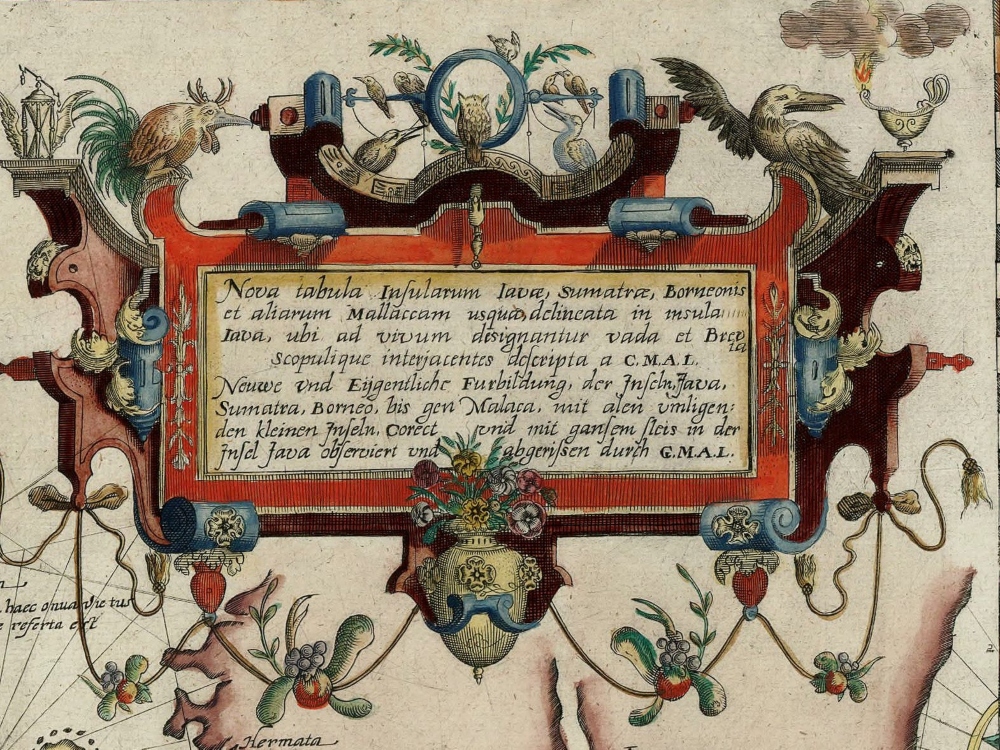 Nova tabula Insularum Iavæ, Sumatræ, Borneonis
et aliarum Mallaccam usqua, delineata in insula
Iava, ubi ad vivum designantur vada et Brevia
scopulique interjacentes descripta a C.M.A.L.
Neuwe vnd Eijgentliche Furbildung, der Jnseln, Java,
Sumatra, Borneo, bis gen Malaca, mit alen vmligen:
den kleinen Jnseln, Corect vnd mit gansem fleis in der
Jnsel Java observiert vnd abgerissen durch G.M.A.L.
haec
referta est
Hermata
2